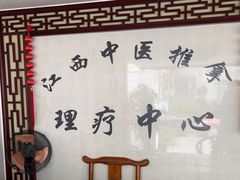 江西中医推拿
理疗中心